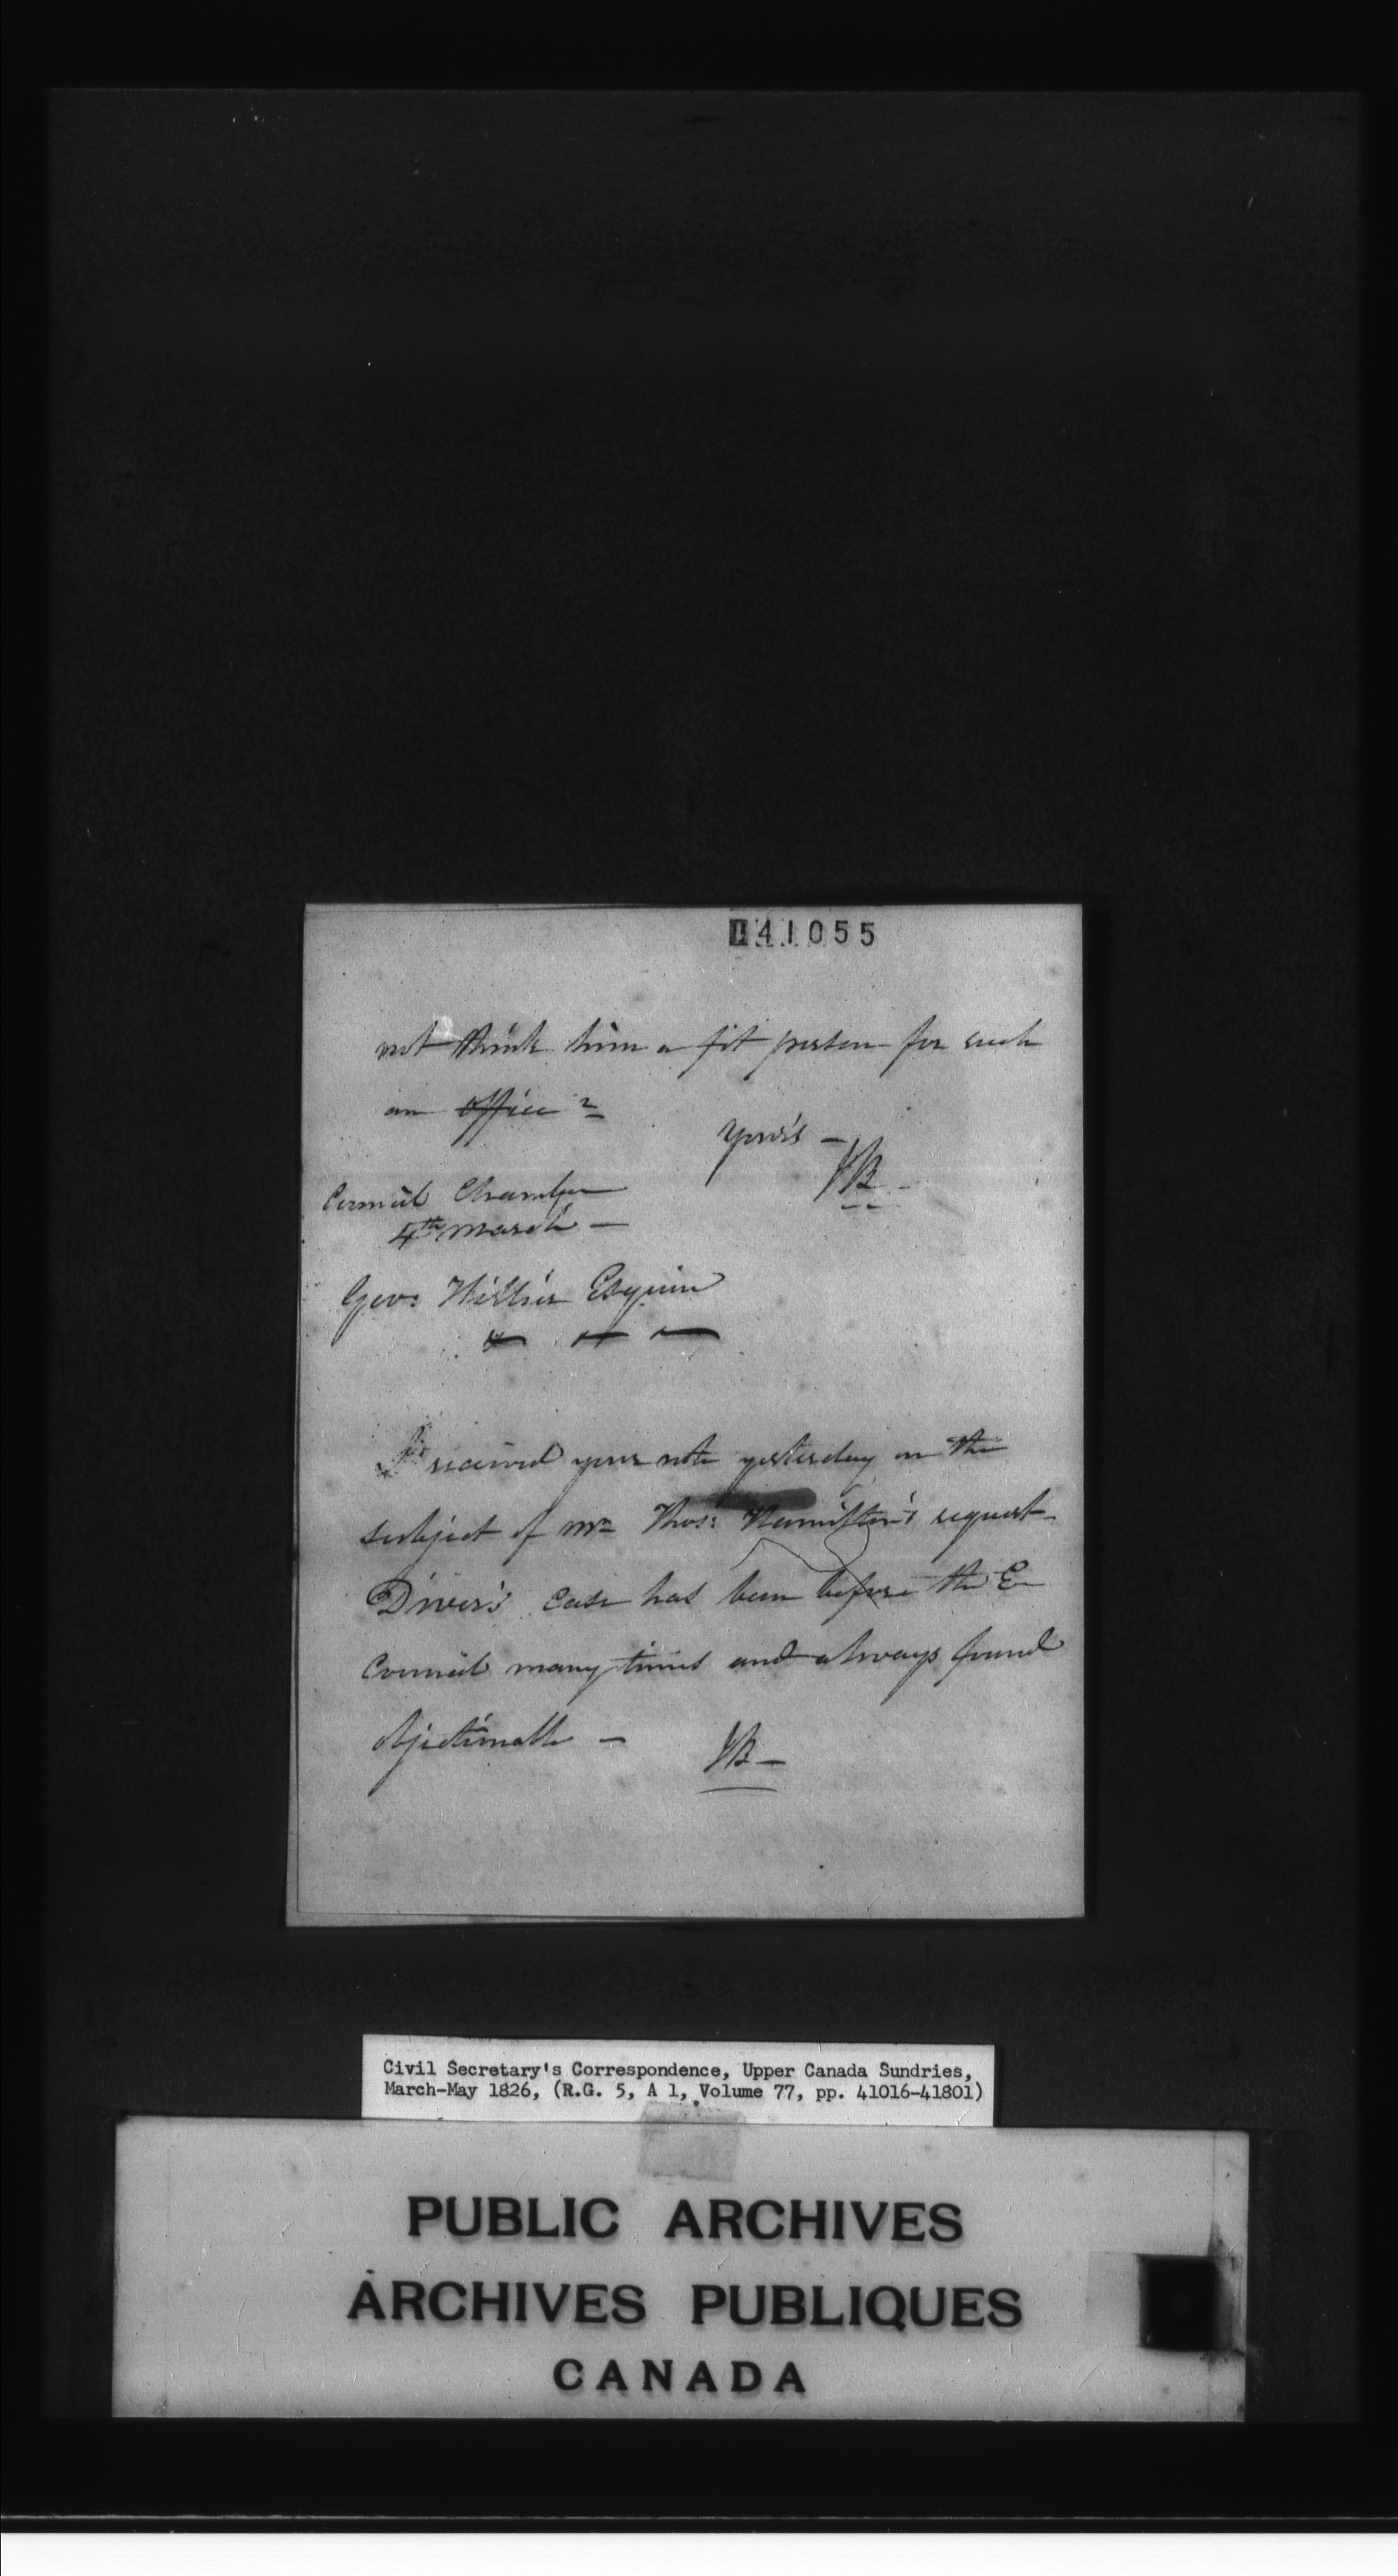 41055
not think him a fit person for such
an office?
Yours —
JB —
Council Chamber
4th March —
Geo: Hillier Esquire
I received your note yesterday on the
subject of Mr Thos: Hamilton's request —
Driver's case has been before the E
Council many times and always found
objectionable —
JB —
Civil Secretary's Correspondence, Upper Canada Sundries,
March-May 1826, (R.G. 5, A 1, Volume 77, pp. 41016-41801)
PUBLIC ARCHIVES
ARCHIVES PUBLIQUES
CANADA